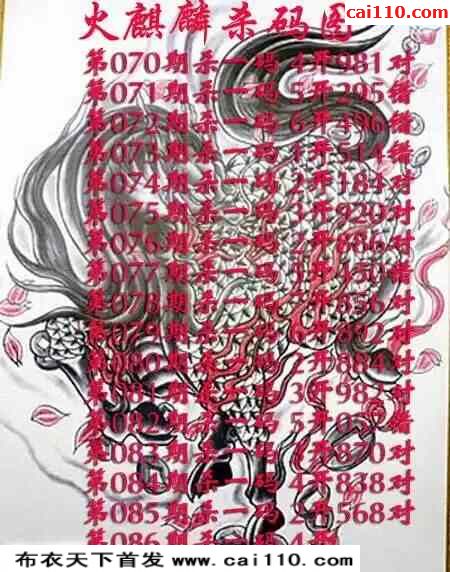 cai110.com
火麒麟杀码图
第070期杀一码 4开981对
第071期杀一码 5开295错
第072期杀一码 6开496错
第073期杀一码 4开514错
第074期杀一码 2开184对
第075期杀一码 3开920对
第076期杀一码 2开686对
第077期杀一码 开450错
第078期杀一码 开856对
第079期杀一码 开892对
第080期杀一码 2开884对
第081期杀一码 3开982对
第082期杀一码 5开05错
第083期杀一码 开870对
第084期杀一码 4开838对
第085期杀一码 2开568对
第086期杀一码 4开
布衣天下首发 www.cai110.com